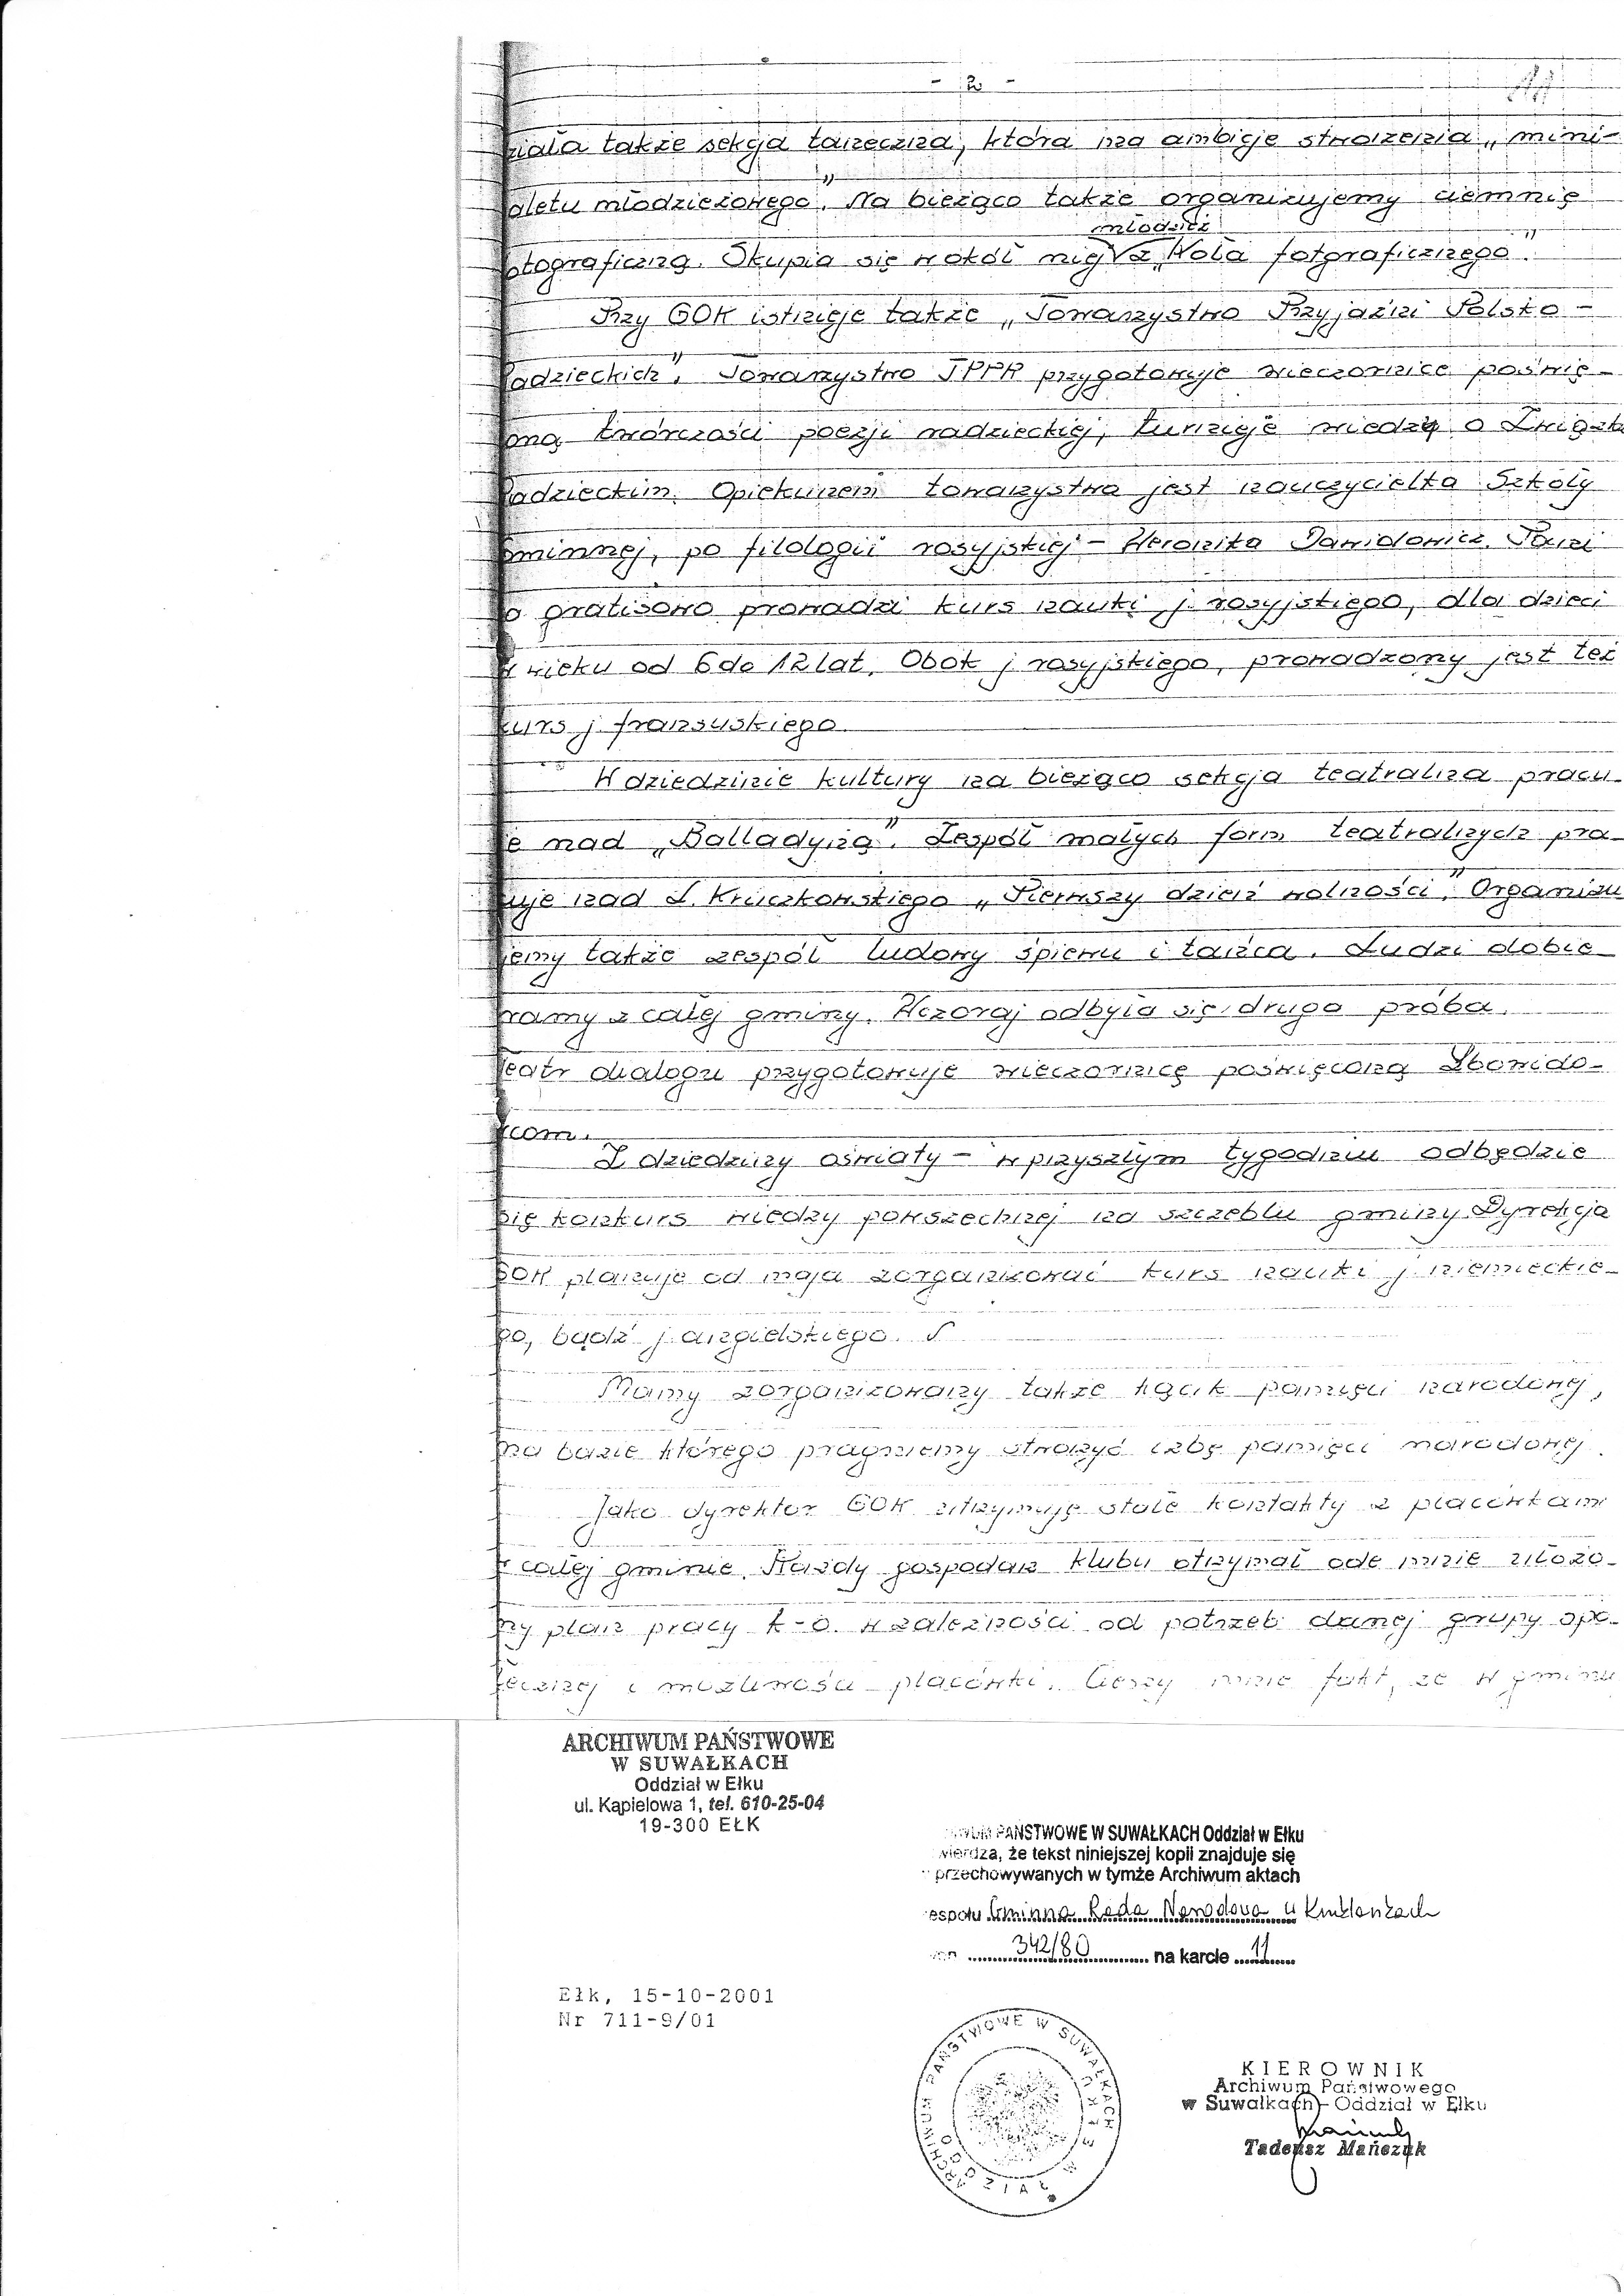 - 2 -
także sekcja taneczna, która ma ambicje stworzenia „mini-
aletu młodzieżowego". Na bieżąco także organizujemy ciemnię
młodzież
tograficzną. Skupia się wokół niej z „Koła fotgraficznego".
Przy GOK istnieje także „Towarzystwo Przyjaźni Polsko -
adzieckich". Towarzystwo TPPR przygotowuje wieczornicę poświę-
oną twórczości poezji radzieckiej, turnieje wiedzy o Związk
adzieckim. Opiekunem towarzystwa jest nauczycielka Szkoły
minnej, po filologii rosyjskiej - Weronika Dawidowicz. Pani
a gratisowo prowadzi kurs nauki j. rosyjskiego, dla dzieci
w wieku od 6 do 12 lat. Obok j. rosyjskiego, prowadzony jest też
kurs j. fransuskiego.
W dziedzinie kultury na bieżąco sekcja teatralna pracu-
je nad „Balladyną". Zespół małych form teatralnych pra-
uje nad L. Kruczkowskiego „Pierwszy dzień wolności". Organizu
jemy także zespół ludowy śpiewu i tańca. Ludzi dobie-
ramy z całej gminy. Wczoraj odbyła się druga próba.
Teatr dialogu przygotowuje wieczornicę poświęconą Zbowido-
wcom.
Z dziedziny oświaty - w przyszłym tygodniu odbędzie
się konkurs wiedzy powszechnej na szczeblu gminy. Dyrekcja
GOK planuje od maja zorganizować kurs nauki j. niemieckie-
go, bądź j. angielskiego.
Mamy zorganizowany także kącik pamięci narodowej,
na bazie którego pragniemy stworzyć izbę pamięci narodowej.
Jako dyrektor GOK utrzymuję stałe kontakty z placówkami
w całej gminie. Każdy gospodarz klubu otrzymał ode mnie ułożo-
ny plan pracy k-o. w zależności od potrzeb danej grupy spo-
łecznej i możliwości placówki. Cieszy mnie fakt, że w gminie
ARCHIWUM PAŃSTWOWE
W SUWAŁKACH
Oddział w Ełku
ul. Kąpielowa 1, tel. 610-25-04
19-300 EŁK
PAŃSTWOWE W SUWAŁKACH Oddział w Ełku
wierdza, że tekst niniejszej kopii znajduje się
przechowywanych w tymże Archiwum aktach
espołu Gminna Rada Narodowa w Kruklankach
342/80 na karcie 11
Ełk, 15-10-2001
Nr 711-9/01
PAŃSTWOWE W SUWAŁKACH
KIEROWNIK
Archiwum Państwowego
w Suwałkach - Oddział w Ełku
Tadeusz Mańczuk